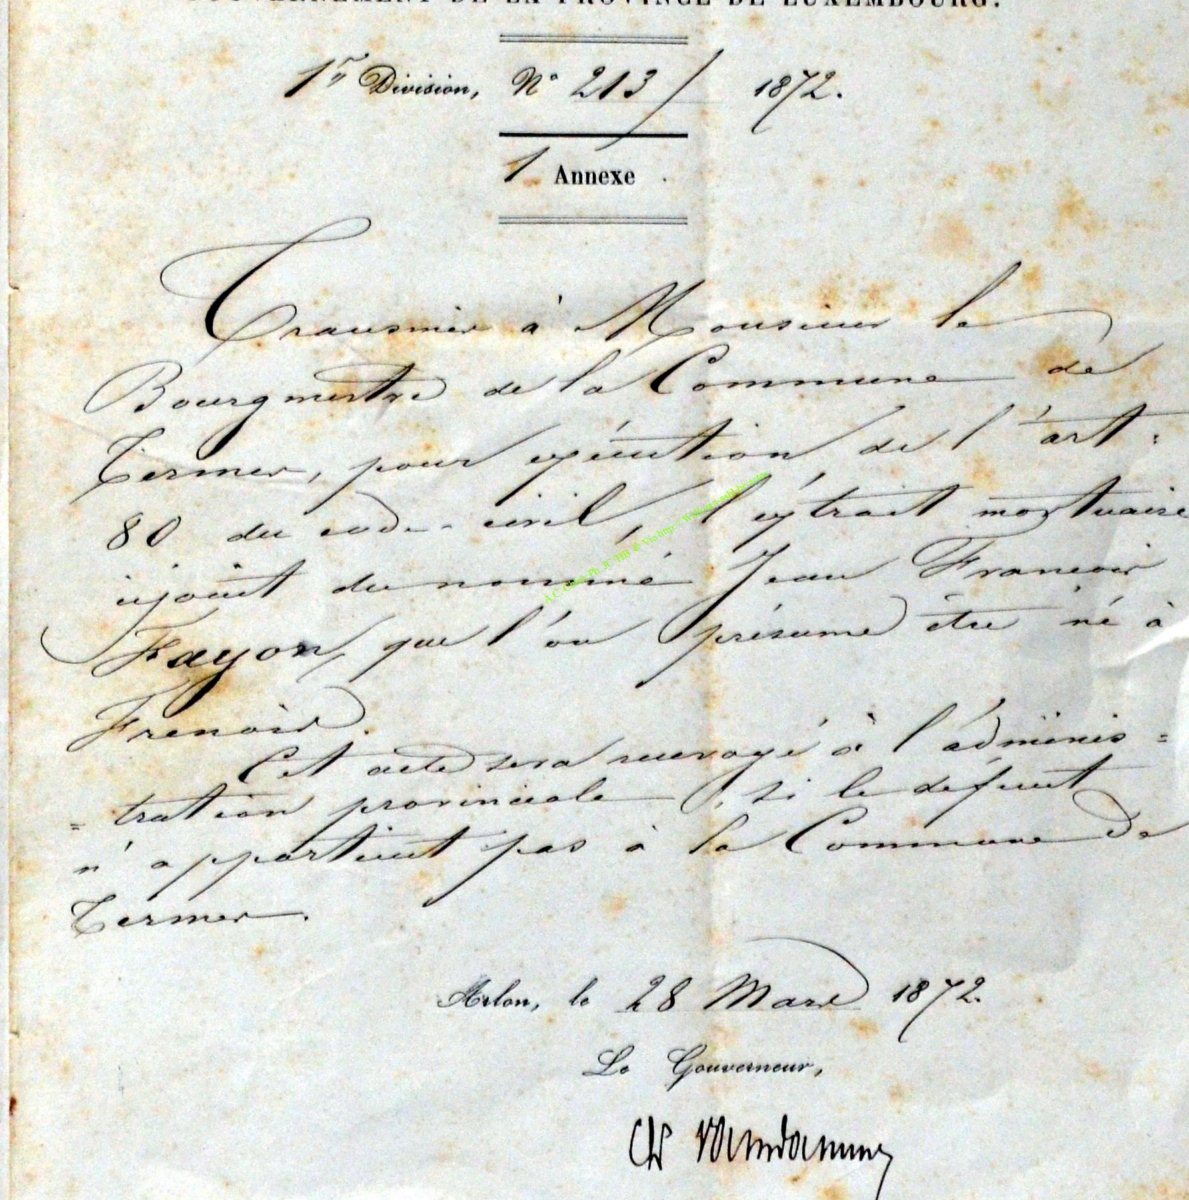 GOUVERNEMENT DE LA PROVINCE DE LUXEMBOURG.
1re Division, N° 213 / 1872.
1 Annexe
Transmis à Monsieur le
Bourgmestre de la Commune de
Termes, pour exécution de l'art.
80 du code civil, l'extrait mortuaire
cijoint du nommé Jean François
Fayon, que l'on présume être né à
Frenois.
Cet acte sera renvoyé à l'adminis=
=tration provinciale, si le défunt
n'appartient pas à la Commune de
Termes.
Arlon, le 28 Mars 1872.
Le Gouverneur,
Ch Vandamme